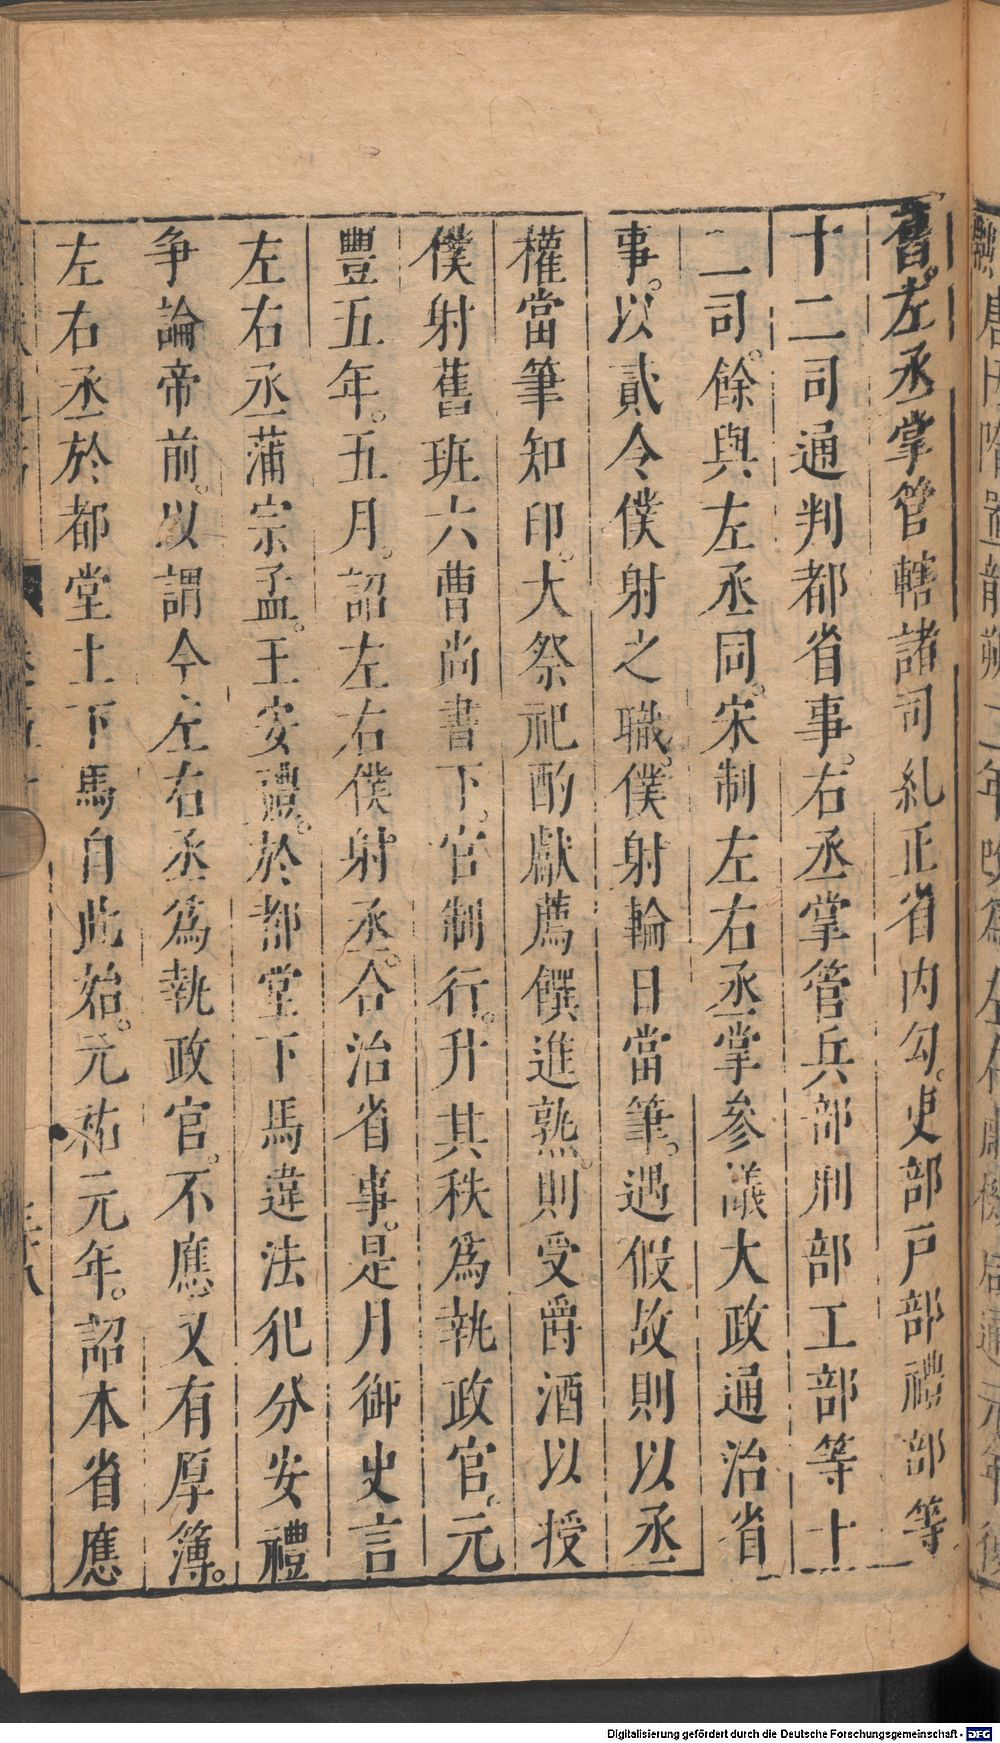 舊。左丞掌管轄諸司糺正省内勾。吏部戸部禮部等
十二司通判都省事。右丞掌管兵部刑部工部等十
二司。餘與左丞同。宋制左右丞掌参議大政通治省
事。以貳令僕射之職。僕射輪日當筆。遇假故則以丞
權當筆知印。大祭祀酌獻薦饌進熟。則受爵酒以授
僕射舊班六曹尚書下。官制行。升其秩爲執政官。元
豐五年。五月。詔左右僕射丞。合治省事。是月御史言
左右丞蒲宗孟。王安禮。於都堂下馬違法犯分安禮
争論帝前。以謂今左右丞爲執政官。不應又有厚薄。
左右丞於都堂上下馬自此始。元祐元年。詔本省應
Digitalisierung gefördert durch die Deutsche Forschungsgemeinschaft - DFG